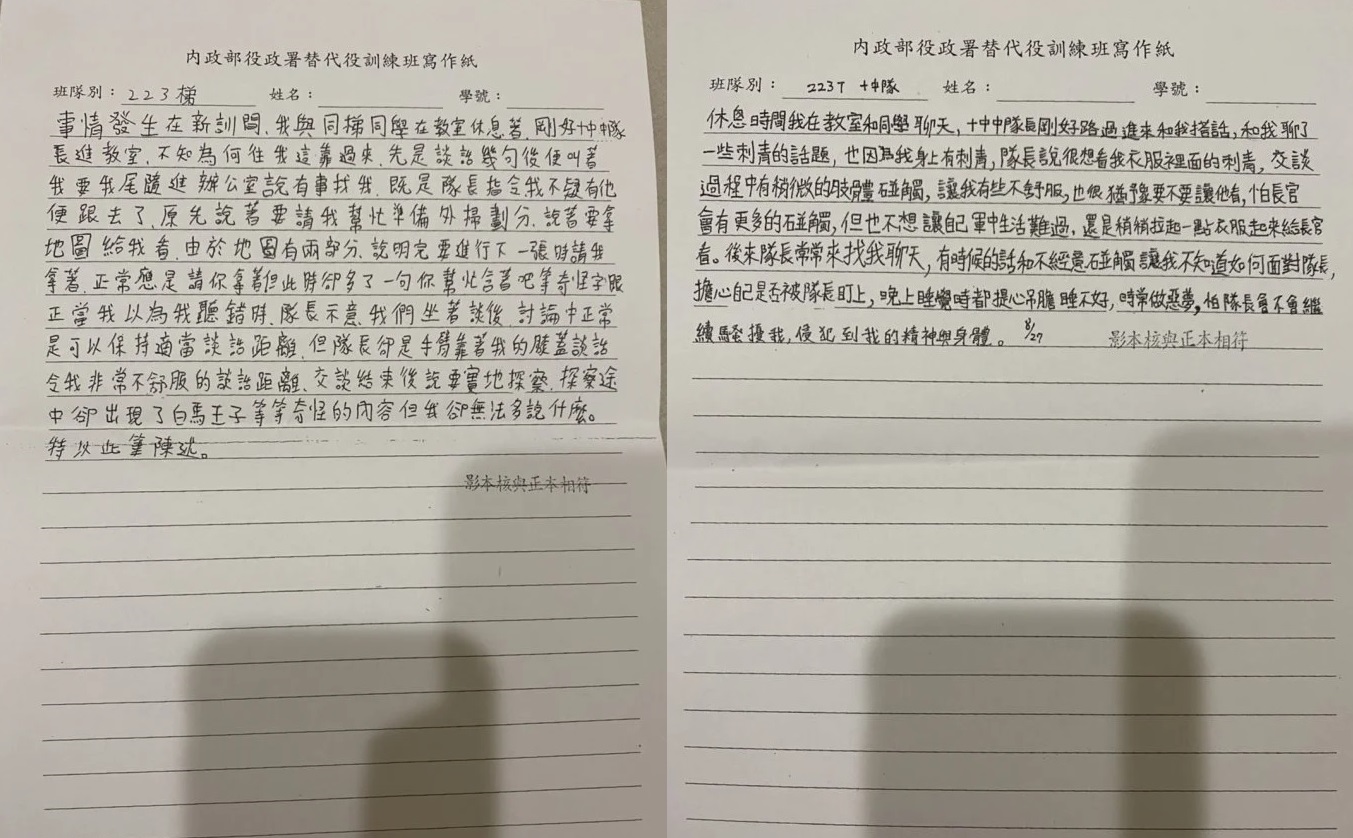 內政部役政署替代役訓練班寫作紙
班隊別：223梯 姓名： 學號：
事情發生在新訓間、我與同梯同學在教室休息著、剛好十中中隊
長進教室、不知為何往我這靠過來、先是談話幾句後便叫著
我要我尾隨進辦公室說有事找我、既是隊長指令我不疑有他
便跟去了、原先說著要請我幫忙準備外掃劃分、說著要拿
地圖給我看、由於地圖有兩部分、說明完要進行下一張時請我
拿著、正常應是請你拿著但此時卻多了一句你幫忙含著吧等奇怪字眼
正當我以為我聽錯時、隊長示意我們坐著談後、討論中正常
是可以保持適當談話距離、但隊長卻是手臂靠著我的膝蓋談話
令我非常不舒服的談話距離、交談結束後說要實地探察、探察途
中卻出現了白馬王子等等奇怪的內容但我卻無法多說什麼。
特以此筆陳述。
影本核與正本相符
內政部役政署替代役訓練班寫作紙
班隊別：223T 十中隊 姓名： 學號：
休息時間我在教室和同學聊天，十中中隊長剛好路過進來和我搭話，和我聊了
一些刺青的話題，也因為我身上有刺青，隊長說很想看我衣服裡面的刺青，交談
過程中有稍微的肢體碰觸，讓我有些不舒服，也很猶豫要不要讓他看，怕長官
會有更多的碰觸，但也不想讓自己軍中生活難過，還是稍稍拉起一點衣服起來給長官
看。後來隊長常常來找我聊天，有時候的話和不經意碰觸讓我不知道如何面對隊長，
擔心自己是否被隊長盯上，晚上睡覺時都提心吊膽睡不好，時常做惡夢，怕隊長會不會繼
續騷擾我，侵犯到我的精神與身體。8/27
影本核與正本相符